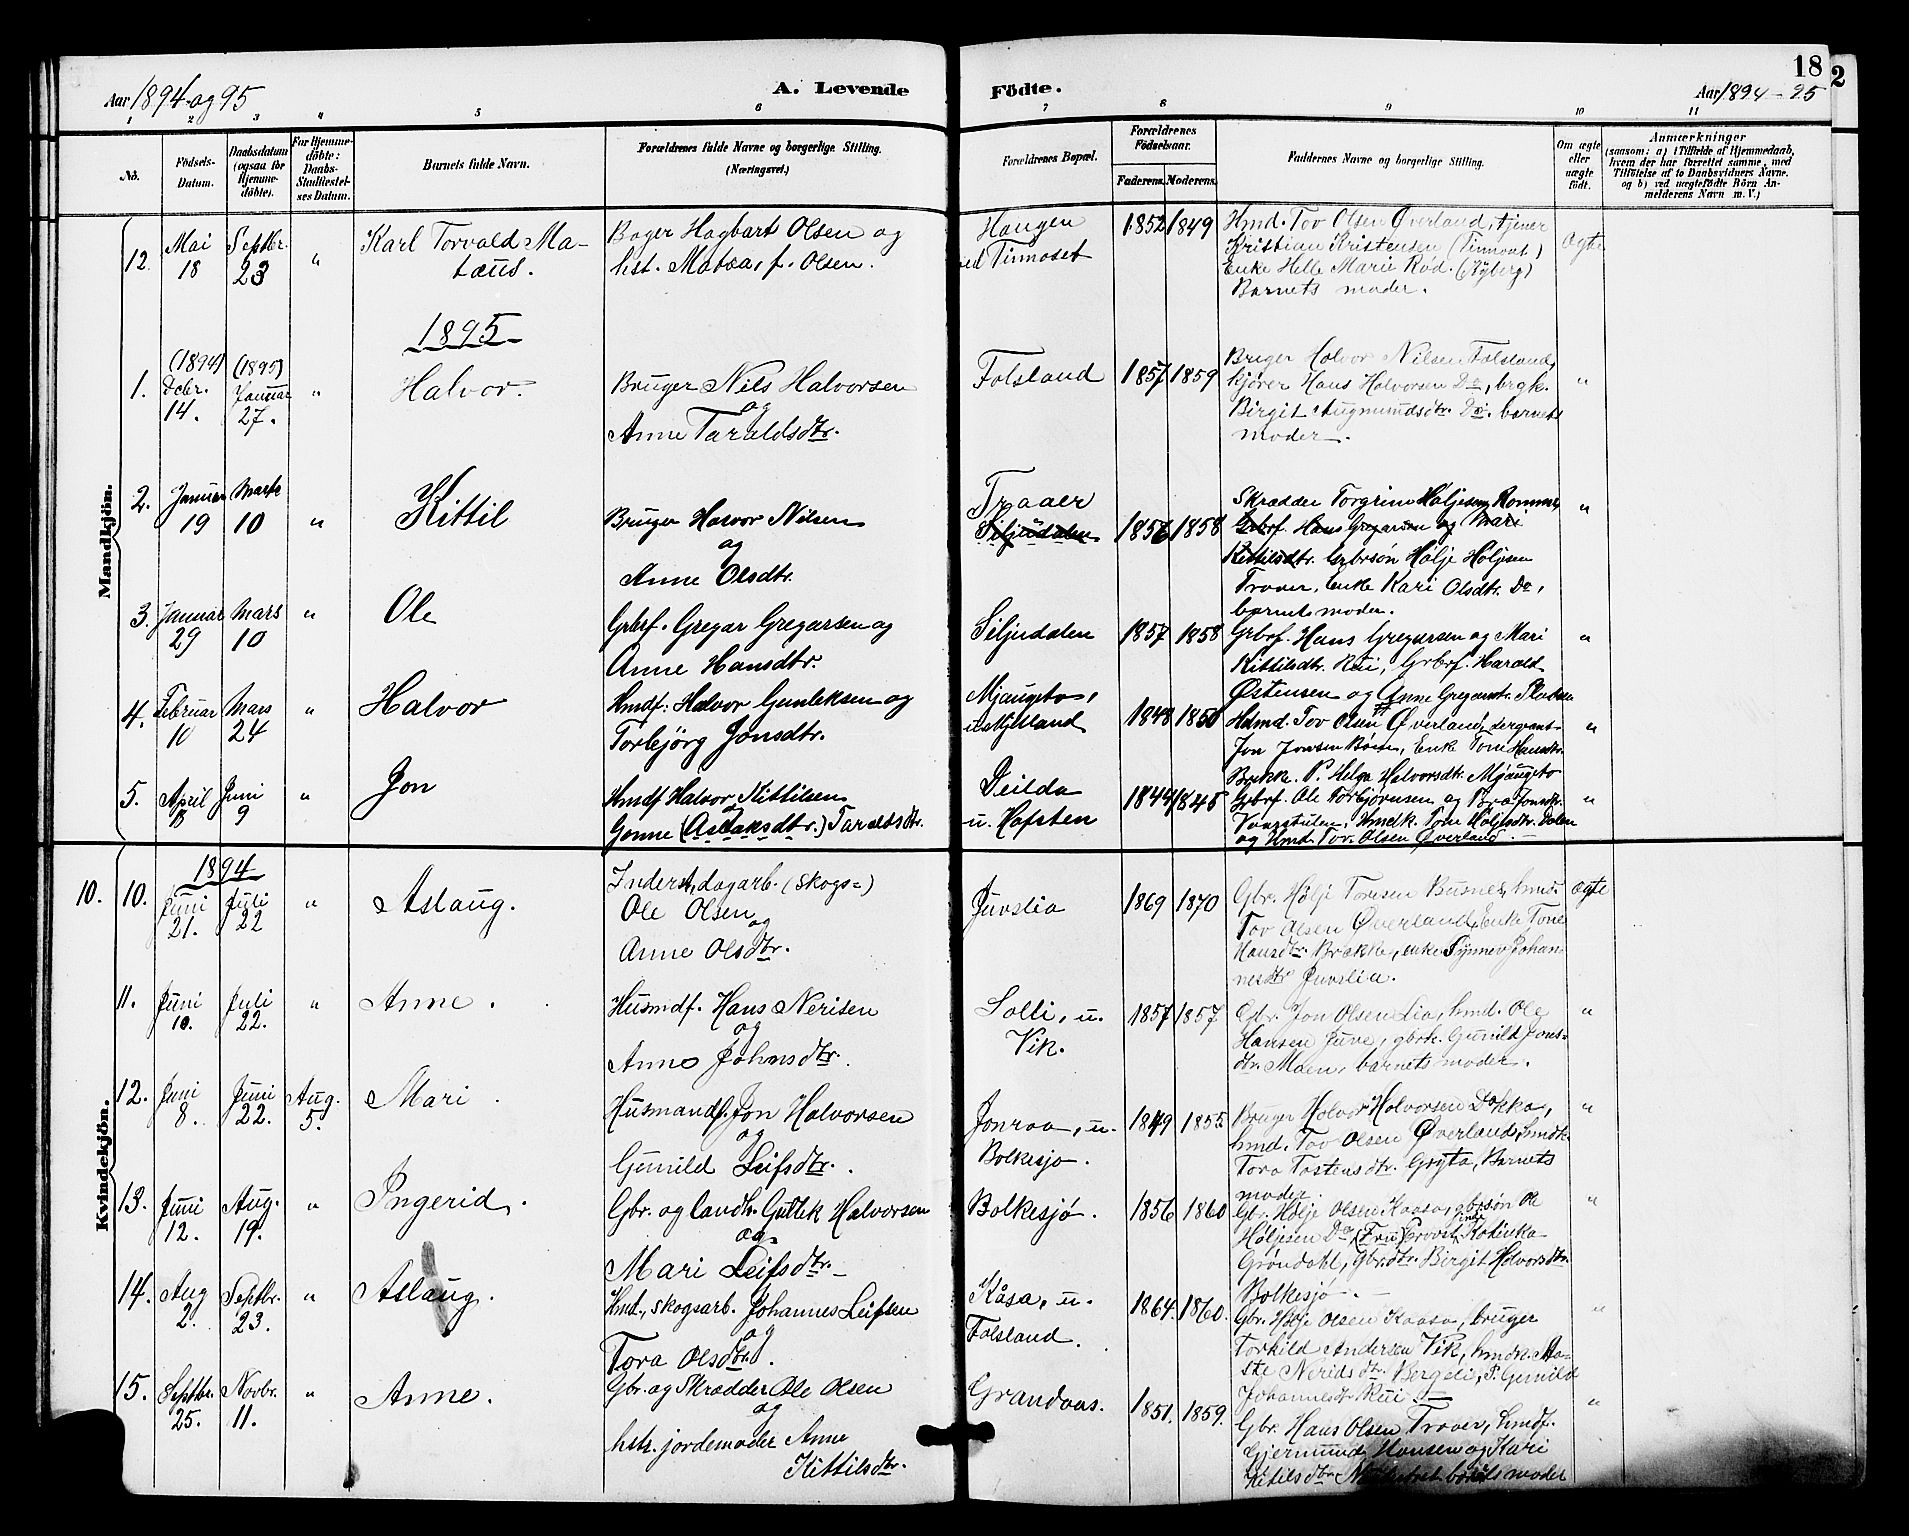 18
2
Aar 1894 og 95
A. Levende
Födte.
Aar 1894-95
1 2 3 4 5 6 7 8 9 10 11
No.
Födsels-
Datum.
Daabsdatum
(ogsaa for
Hjemme-
döbte).
For Hjemme-
döbte:
Daabs-
Stadfæstel-
ses Datum.
Barnets fulde Navn.
Forældrenes fulde Navne og borgerlige Stilling.
(Næringsvei.)
Forældrenes Bopæl.
Forældrenes
Födselsaar.
Faderens. Moderens.
Faddernes Navne og borgerlige Stilling.
Om ægte
eller
uægte
födt.
Anmærkninger
(saasom: a) i Tilfælde af Hjemmedaab,
hvem der har forrettet samme, med
Tilföielse af to Daabsvidners Navne.
og b) ved uægtefödte Börn An-
melderens Navn m. V.)
Mandkjön.
12. Mai 18 Septbr. 23 "
Karl Torvald Ma-
tæus.
Bager Hagbart Olsen og
hst. Matea, f. Olsen.
Haugen
ved Tinnoset
1852 1849
Hmd. Tov Olsen Øverland, tjener
Kristian Kristensen (Tinnoset)
Enke Helle Marie Rød. (Nyberg)
Barnets moder.
Ægte
1895
1. (1894) Dcbr. 14. (1895) Januar 27. "
Halvor.
Bruger Nils Halvorsen
og
Anne Taraldsdtr.
Folsland
1857 1859
Bruger Halvor Nilsen Folsland,
kjører Hans Halvorsen Do, brgk.
Birgit Augmundsdtr. Do. barnets
moder.
"
2. Januar 19 Marts 10 "
Kittil
Bruger Halvor Nilsen
og
Anne Olsdtr.
Traaer
Siljudalen
1856 1858
Skrædder Torgrim Høljesen Rommes,
Grbrf. Hans Gregarsen og Mari
Kittilsdtr. Grbrsøn Hølje Høljsen
Traaer, Enke Kari Olsdtr. Do,
barnets moder.
"
3. Januar 29 Mars 10 "
Ole
Grbrf. Gregar Gregarsen og
Anne Hansdtr.
Siljudalen
1857 1858
Grbrf. Hans Gregarsen og Mari
Kittilsdtr. Rui, Grbrf. Harald
Østensen og Anne Gregarsdtr.
"
4. Februar 10 Mars 24 "
Halvor
Hmdf. Halvor Gunleksen og
Torbjörg Jonsdtr.
Mjaugeto,
u. Mjelland
1848 1850
Hdmd. Tov Olsen Øverland, sergeant
Jon Jonsen Bøen, Enke Tone Hansdtr.
Bakke. P. Helga Halvorsdtr. Mjaugeto
"
5. April 13 Juni 9 "
Jon
Hmdf Halvor Kittilsen
og
Gonne (Aslaksdtr.) Taraldsdtr.
Deilda
u. Hofsten
1844 1845
Grbrf. Ole Torbjörnsen og Tora Jonsdtr.
Vaarstulen, Hmdk. Tone Høljesdtr. Dalen
og Hmd. Tov. Olsen Øverland.
"
Kvindekjön.
1894
10. 10. Juni 21. Juli 22 "
Aslaug.
Inderst, dagarb. (skogs=)
Ole Olsen
og
Anne Olsdtr.
Juvslia
1869 1870
Gbr. Hølje Toresen Busnes, hmd.
Tov Olsen Øverland, Enke Tone
Hansdtr. Bakke, enke Synnev Johan-
nesdtr Juvslia.
ægte
11. Juni 10. Juli 22. "
Anne.
Husmdf. Hans Nerisen
og
Anne Johnsdtr.
Solli, u.
Vik.
1857 1857
Gbr. Jon Olsen Lia, hmd. Ole
Hansen Juve, gbrk. Gunild Jons-
dtr. Moen, barnets moder.
"
12. Juni 8. Juni 22. Aug. 5.
Mari.
Husmandf. Jon Halvorsen
og
Gunild Leifsdtr.
Jonraa, u.
Bolkesjø.
1849 1855
Bruger Halvor Halvorsen Dokka,
hmd. Tov Olsen Øverland, hmdk.
Tora Tostensdtr. Gryta, Barnets
moder.
"
13. Juni 12. Aug. 19. "
Ingerid.
Gbr. og landh. Gutlek Halvorsen
og
Mari Leifsdtr.
Bolkesjø.
1856 1860
Gbr. Hølje Olsen Kaasa, gbrsøn Ole
Høljesen Do, (Fru) Provstinde Katinka
Grøndahl, Gbr.dtr. Birgit Halvorsdtr.
Bolkesjø.
"
14. Aug 2. Septbr. 23. "
Aslaug.
Hmd., skogsarb. Johannes Leifsen
og
Tora Olsdtr.
Kåsa, u.
Folsland.
1864. 1860.
Gbr. Hølje Olsen Kaasa, bruger
Torkild Andersen Vik, hmdk. Aa-
ste Neridsdtr. Bergeli, P. Gunild
Johannesdtr Rui.
"
15. Septbr. 25. Novbr. 11. "
Anne.
Gbr. og Skrædder Ole Olsen
og
hstr. jordemoder Anne
Kittilsdtr.
Grandaas.
1851. 1859.
Gbr. Hans Olsen Traaer, hmdf.
Gjermund Hansen og Kari
Kitilsdtr barnets moder
"